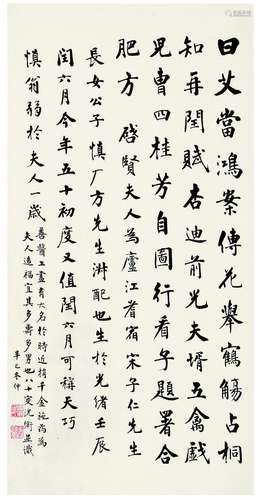 曰艾當鴻案傳花舉鶴觴占桐
知再閏賦杏迪前光夫婿五禽戲
兒曹四桂芳自圖行看子題署合
肥方 啓賢夫人為廬江耆宿宋子仁先生
長女公子 慎厂方先生淑配也生於光緒壬辰
閏六月今年五十初度又值閏六月可稱天巧
慎翁弱於夫人一歲
善醫工畫有大名於時近捐千金施药為
夫人造福宜其多壽多男也八十叟沈衛並識
辛巳冬仲